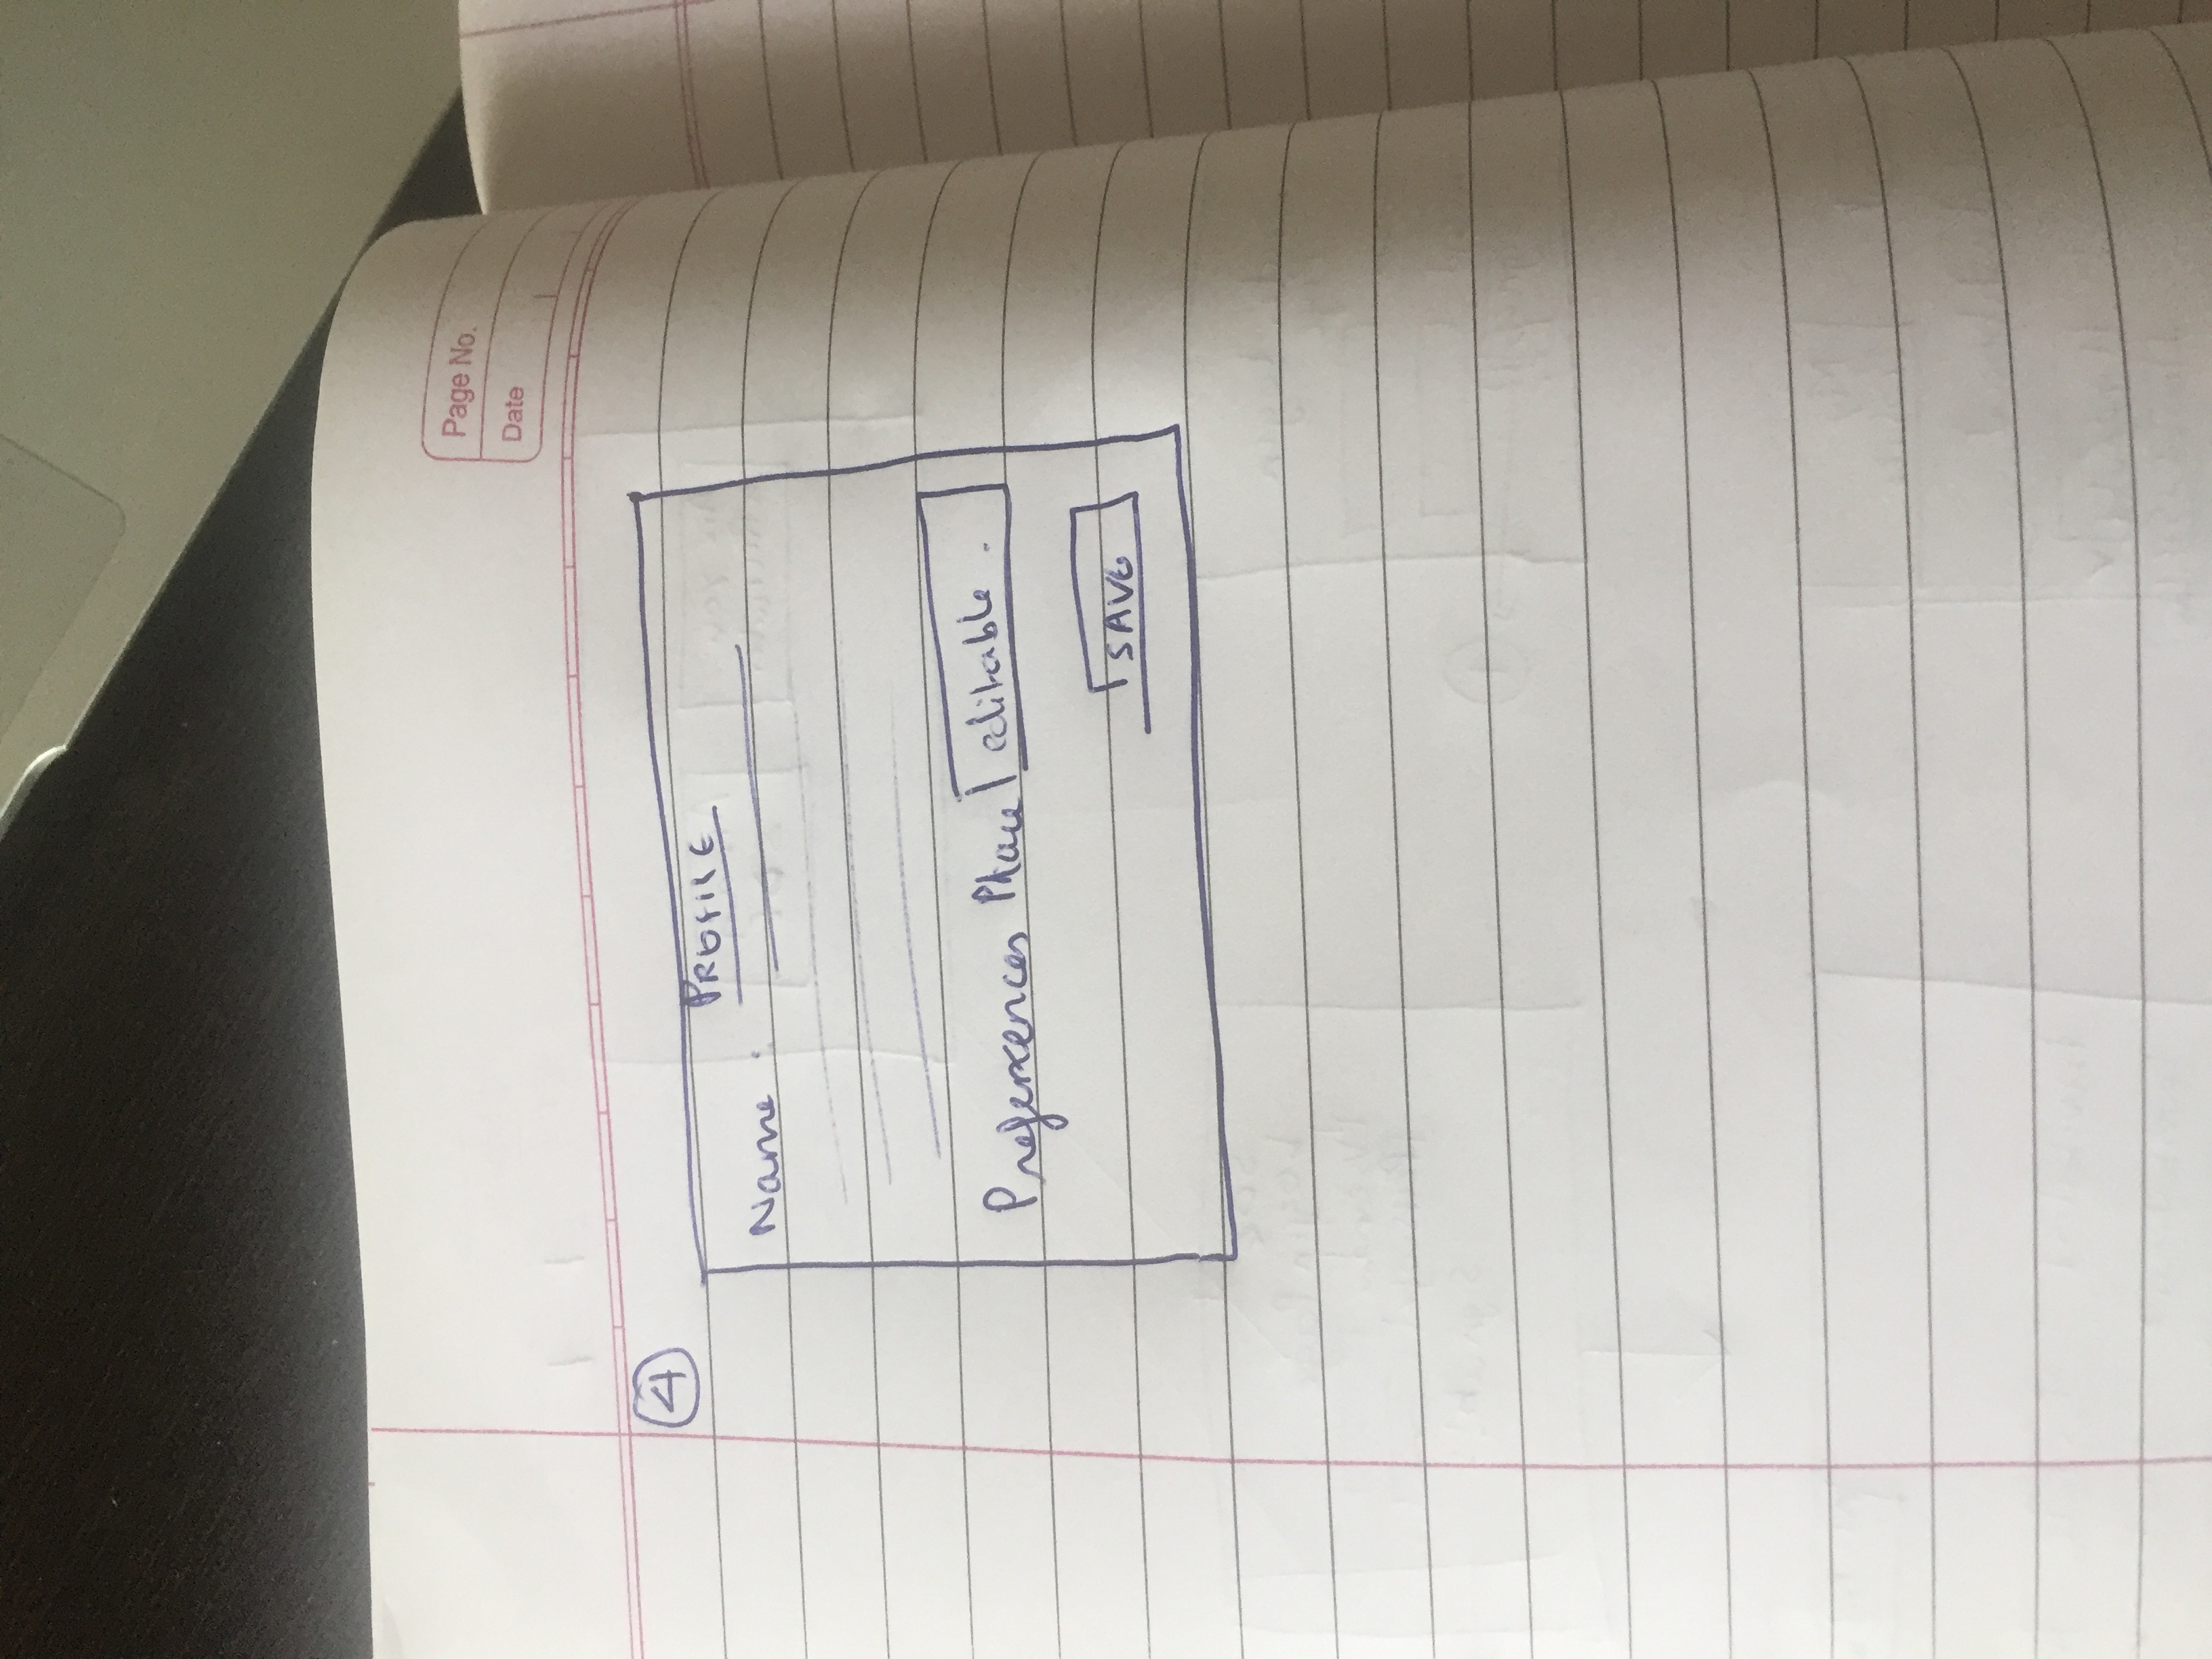 Page No.
Date
4
PROFILE
Name :
Preferences Place editable .
SAVE